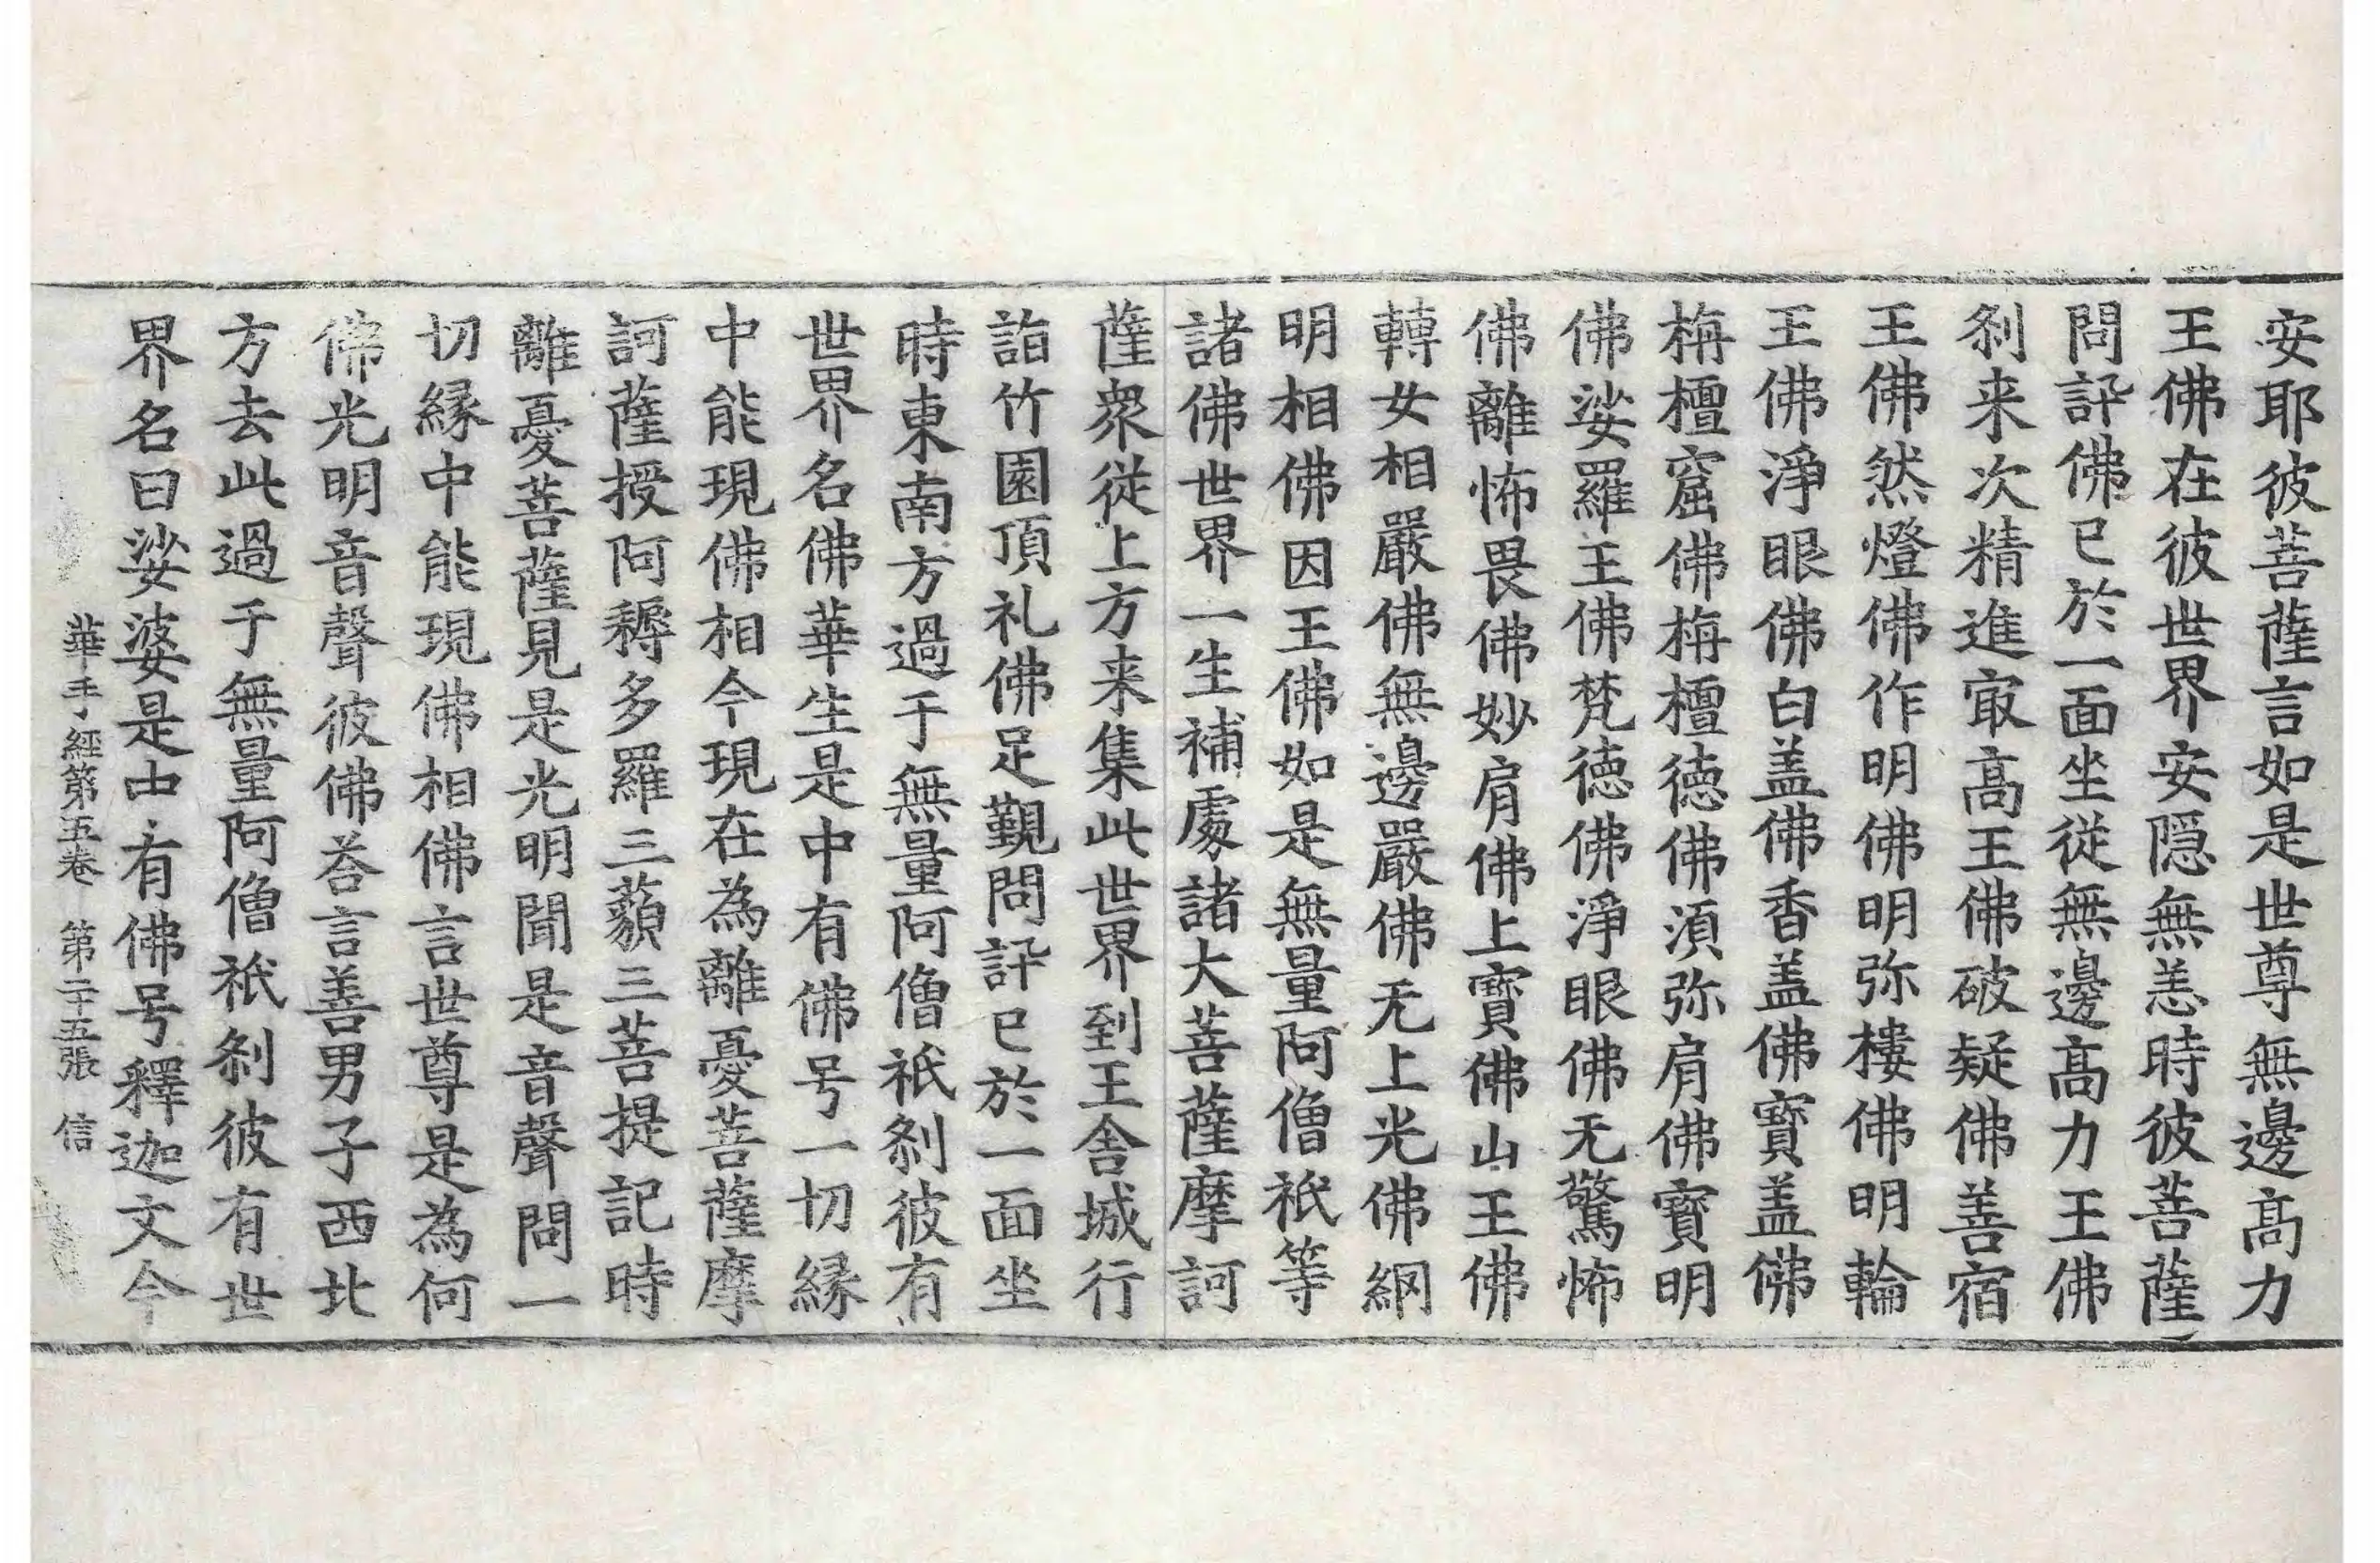 安耶彼菩薩言如是世尊無邊髙力
王佛在彼世界安隠無恙時彼菩薩
問訊佛已於一面坐從無邊髙力王佛
刹来次精進冣髙王佛破疑佛善宿
王佛然燈佛作明佛明弥樓佛明輪
王佛淨眼佛白盖佛香盖佛寳盖佛
栴檀窟佛栴檀徳佛湏弥肩佛寳明
佛娑羅王佛梵徳佛淨眼佛无驚怖
佛離怖畏佛妙肩佛上寳佛山王佛
轉女相嚴佛無邊嚴佛无上光佛網
明相佛因王佛如是無量阿僧祇等
諸佛世界一生補處諸大菩薩摩訶
薩衆從上方来集此世界到王舍城行
詣竹園頂礼佛足覲問訊已於一面坐
時東南方過于無量阿僧祇刹彼有
世界名佛華生是中有佛号一切縁
中能現佛相今現在為離憂菩薩摩
訶薩授阿耨多羅三藐三菩提記時
離憂菩薩見是光明聞是音聲問一
切縁中能現佛相佛言世尊是為何
佛光明音聲彼佛荅言善男子西北
方去此過于無量阿僧祇刹彼有世
界名曰娑婆是中有佛号釋迦文今
華手經第五卷　第二十五張　信